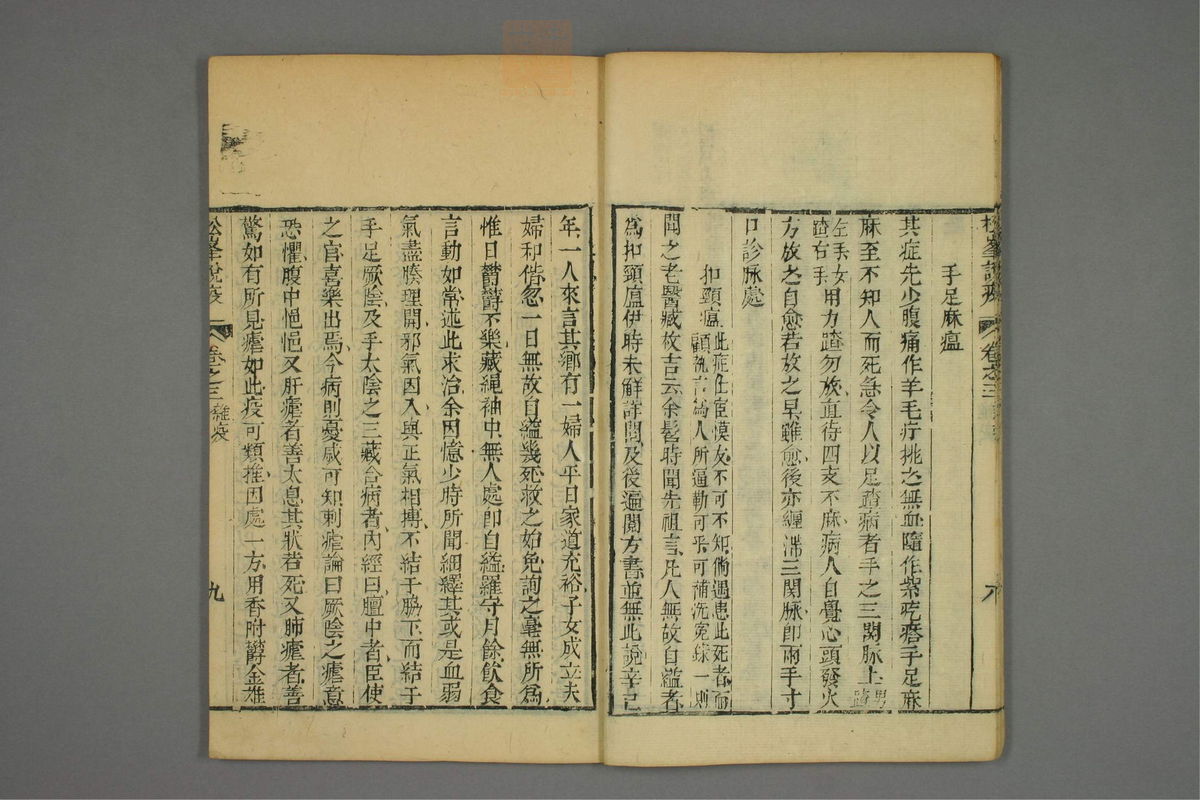 松峯說疫 卷之三 八
手足麻瘟
其症先少腹痛作羊毛疔挑之無血隨作紫疙瘩手足麻
麻至不知人而死急令人以足蹅病者手之三関脉上男蹅
左手女蹅右手用力蹅勿放直待四支不麻病人自覺心頭發火
方放之自愈若放之早雖愈後亦纏滯三関脉即兩手寸
口診脉處
扣頸瘟此症仕宦慎友不可不知倘遇患此死者而
顧執言為人所逼勒可乎可補洗冤錄一則
聞之老醫臧枚吉云余髫時聞先祖言凡人無故自縊者
為扣頸瘟伊時未觧詳問及後遍閱方書並無此說辛巳
年一人來言其鄉有一婦人平日家道充裕子女成立夫
婦和偕忽一日無故自縊幾死救之始免詢之毫無所為
惟日欝欝不樂藏繩袖中無人處即自縊羅守月餘飲食
言動如常述此求治余因憶少時所聞細繹其或是血弱
氣盡腠理開邪氣因入與正氣相搏不結于脇下而結于
手足厥陰及手太陰之三藏合病者内經曰膻中者臣使
之官喜樂出焉今病則憂慼可知刺瘧論曰厥陰之瘧意
恐懼腹中悒悒又肝瘧者善太息其狀若死又肺瘧者善
驚如有所見瘧如此疫可類推因處一方用香附欝金雄
松峯說疫 卷之三 雜疫 九